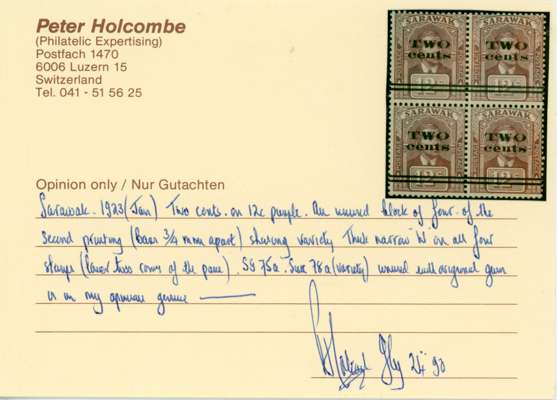 Peter Holcombe
(Philatelic Expertising)
Postfach 1470
6006 Luzern 15
Switzerland
Tel. 041 - 51 56 25
SARAWAK SARAWAK
TWO TWO
cents cents
12c 12c
SARAWAK SARAWAK
TWO TWO
cents cents
12c 12c
Opinion only / Nur Gutachten
Sarawak. 1923 (Jan) Two cents. on 12c purple. An unused block of four. of the
second printing (Bars 3/4 mm apart) showing variety Thick narrow 'W' in all four
stamps (lower two rows of the pane). SG 75a. (variety) unused with original gum
is in my opinion genuine
24 90